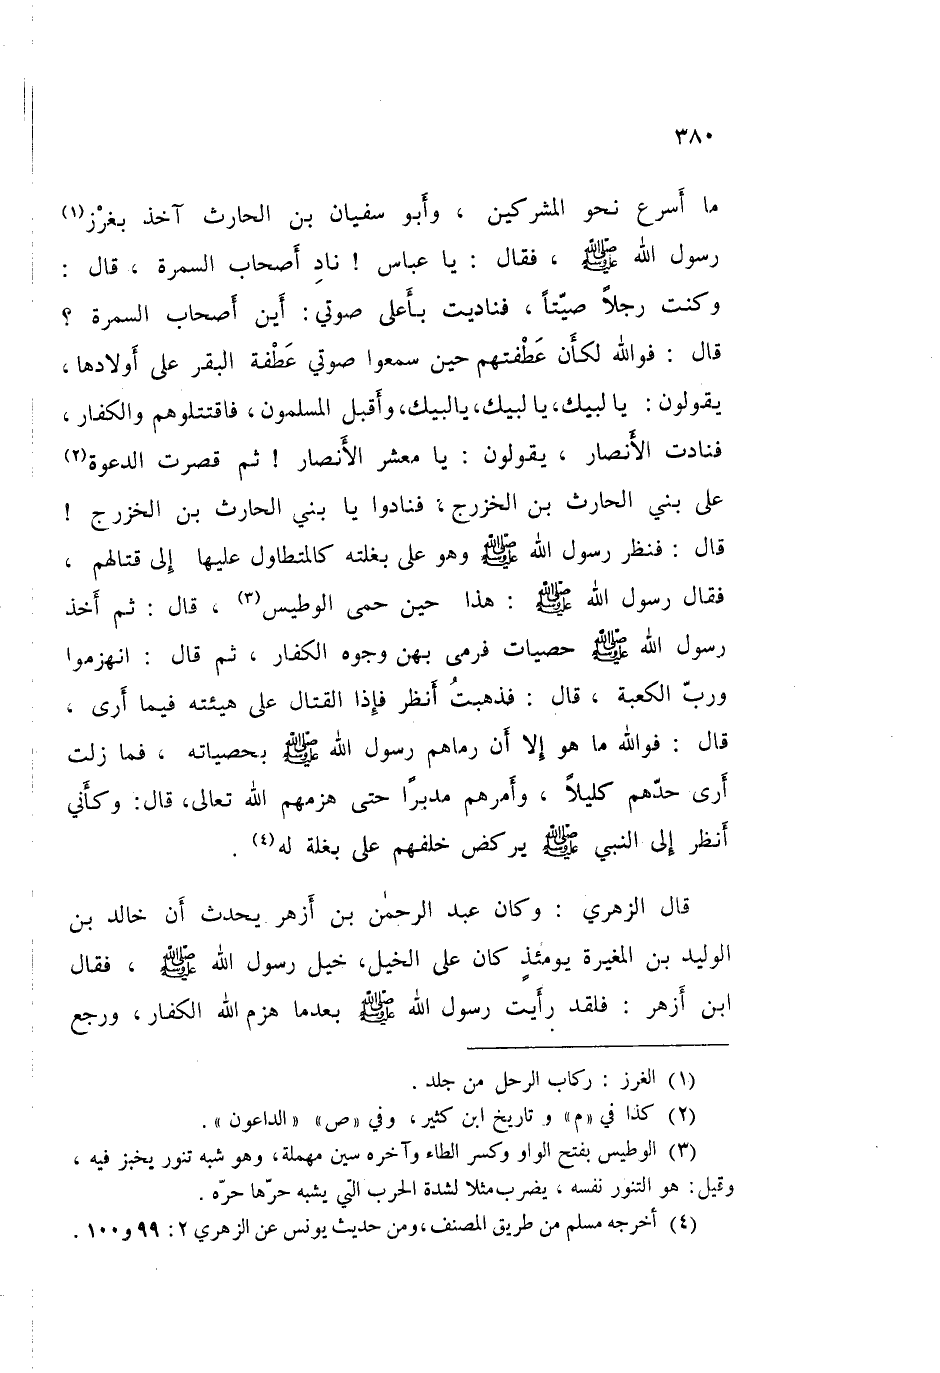 ٣٨٠
ما أَسرع نحو المشركين ، وأَبو سفيان بن الحارث آخذ بغَرْز(١)
رسول الله ﷺ ، فقال : يا عباس ! نادِ أَصحاب السمرة ، قال :
وكنت رجلاً صيّتاً ، فناديت بأَعلى صوتي : أَين أَصحاب السمرة ؟
قال : فوالله لكأَن عَطْفتهم حين سمعوا صوتي عَطْفة البقر على أَولادها ،
يقولون : يا لبيك، يا لبيك، يالبيك، وأَقبل المسلمون، فاقتتلوهم والكفار ،
فنادت الأَنصار ، يقولون : يا معشر الأَنصار ! ثم قصرت الدعوة(٢)
على بني الحارث بن الخزرج ، فنادوا يا بني الحارث بن الخزرج !
قال : فنظر رسول الله ﷺ وهو على بغلته كالمتطاول عليها إِلى قتالهم ،
فقال رسول الله ﷺ : هذا حين حمى الوطيس(٣) ، قال : ثم أَخذ
رسول الله ﷺ حصيات فرمى بهن وجوه الكفار ، ثم قال : انهزموا
وربّ الكعبة ، قال : فذهبتُ أَنظر فإِذا القتال على هيئته فيما أَرى ،
قال : فوالله ما هو إِلا أَن رماهم رسول الله ﷺ بحصياته ، فما زلت
أَرى حدّهم كليلاً ، وأَمرهم مدبرًا حتى هزمهم الله تعالى، قال: وكأَني
أَنظر إِلى النبي ﷺ يركض خلفهم على بغلة له(٤) .
قال الزهري : وكان عبد الرحمٰن بن أَزهر يحدث أَن خالد بن
الوليد بن المغيرة يومئذٍ كان على الخيل، خيل رسول الله ﷺ ، فقال
ابن أَزهر : فلقد رأَيت رسول الله ﷺ بعدما هزم الله الكفار ، ورجع
(١) الغرز : ركاب الرحل من جلد .
(٢) كذا في «م» و تاريخ ابن كثير، وفي «ص» «الداعون» .
(٣) الوطيس بفتح الواو وكسر الطاء وآخره سين مهملة، وهو شبه تنور يخبز فيه ،
وقيل: هو التنور نفسه ، يضرب مثلا لشدة الحرب التي يشبه حرّها حرّه .
(٤) أخرجه مسلم من طريق المصنف، ومن حديث يونس عن الزهري ٢: ٩٩ و١٠٠ .